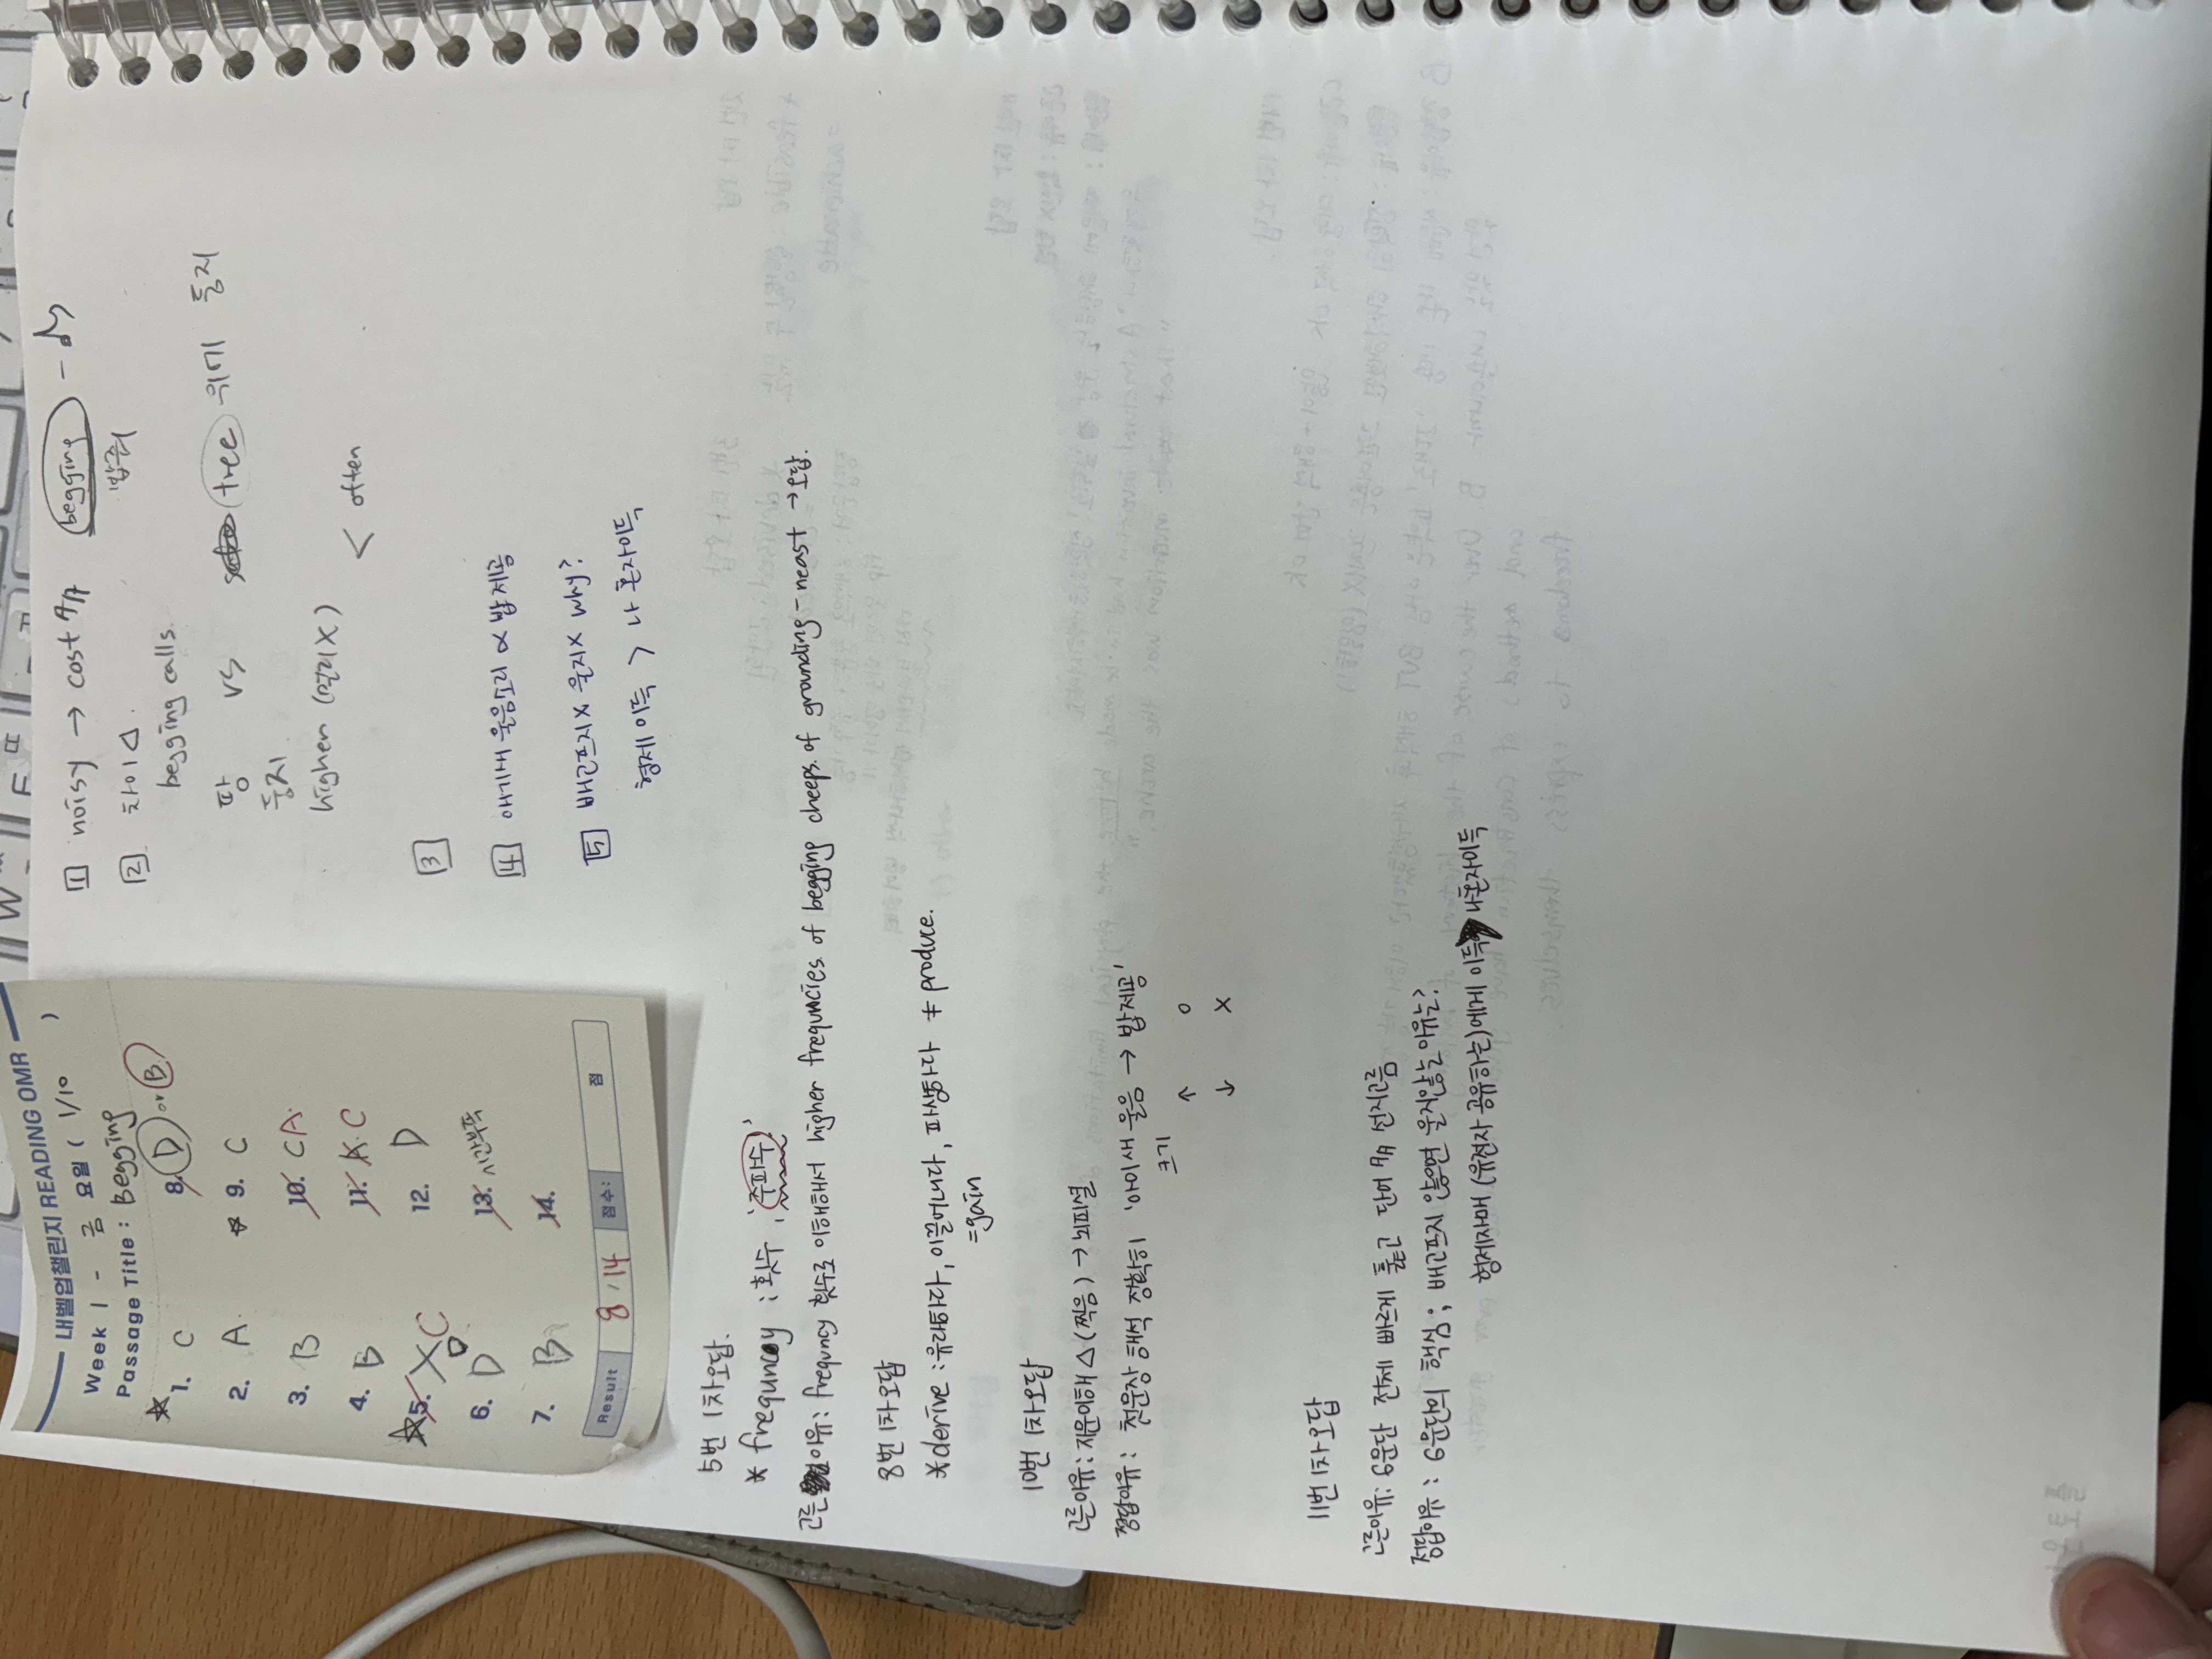 내벨업챌린지 READING OMR
Week 1 - 금 요일 ( 1/10 )
Passage Title : Begging
1. C
2. A
3. B
4. B
5. X C
D
6. D
7. B
8. D or B
9. C
10. C A
11. A C
12. D
13. 시간부족
14.
Result 8/14 점수: 점
1 noisy → cost ↑↑ begging - 
2 차이 △. 밥줘
begging calls.
땅 vs tree 위에 둥지
둥지.
higher (멀리X) < often
3
4 애기새 울음소리 ∝ 밥 제공
5 배고프지X 울지X why?
형제 이득 > 나 혼자이득
5번 1차오답.
* frequncy : 횟수, '주파수'
고른 이유: frequncy 횟수로 이해해서 higher frequncies of begging cheeps of grounding-neast → 오답.
8번 1차오답
*derive : 유래되다, 이끌어내다, 파생하다 ≠ produce.
=gain
10번 1차오답
고른이유: 지문이해 △ (찍음) → 뇌피셜
정답이유 : 첫문장 해석 정확히 '아이새 울음 → 밥제공'
크기 ↑ o
↓ x
11번 1차오답
고른이유: 6문단 전체 빠르게 훑고 단어 선지고름
정답이유 : 6문단의 핵심; 배고프지 않으면 울지않는 이유는?
형제자매 (유전자 공유하는)에게 이득 나혼자이득